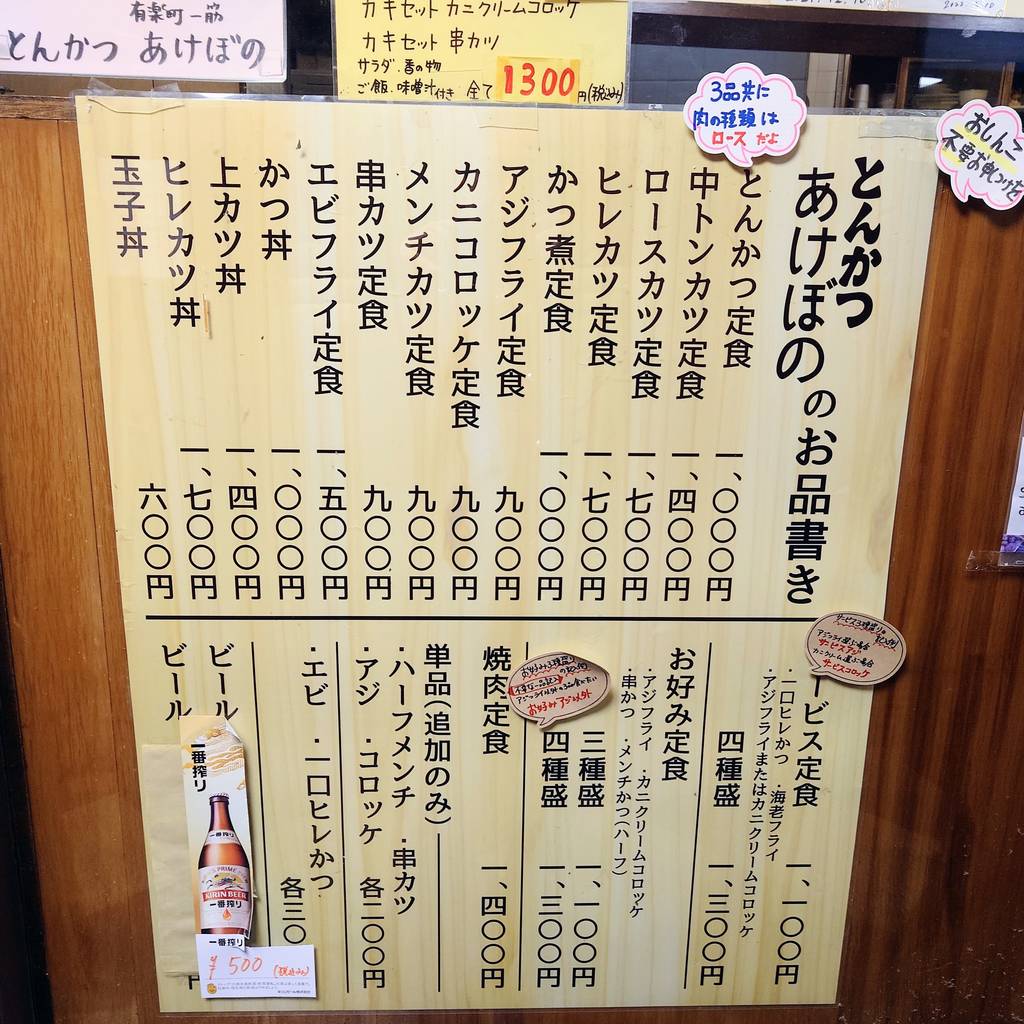 有楽町一筋
とんかつ あけぼの
カキセット カニクリームコロッケ
カキセット 串カツ
サラダ・香の物
ご飯、味噌汁付き 全て1300円(税込み)
3品共に
肉の種類は
ロースだよ
おしんこ
不要お気
とんかつ
あけぼののお品書き
とんかつ定食 一、〇〇〇円
中トンカツ定食 一、四〇〇円
ロースカツ定食 一、七〇〇円
ヒレカツ定食 一、七〇〇円
かつ煮定食 一、〇〇〇円
アジフライ定食 九〇〇円
カニコロッケ定食 九〇〇円
メンチカツ定食 九〇〇円
串カツ定食 九〇〇円
エビフライ定食 一、五〇〇円
かつ丼 一、〇〇〇円
上カツ丼 一、四〇〇円
ヒレカツ丼 一、七〇〇円
玉子丼 六〇〇円
ービス定食 一、一〇〇円
・一口ヒレかつ ・海老フライ
・アジフライまたはカニクリームコロッケ
四種盛 一、三〇〇円
お好み定食
・アジフライ ・カニクリームコロッケ
・串かつ ・メンチかつ(ハーフ)
三種盛 一、一〇〇円
四種盛 一、三〇〇円
焼肉定食 一、四〇〇円
単品(追加のみ)
・ハーフメンチ ・串カツ
・アジ ・コロッケ 各二〇〇円
・エビ ・一口ヒレかつ 各三〇
ビール
ビール
円
アジフライ選ぶ場合
サービスアジ
カニクリーム選ぶ場合
サービスコロッケ
お好み三種盛り
お好みアジ以外
一番搾り
一番搾り
KIRIN BEER
一番搾り
一番搾り
¥500(税込み)